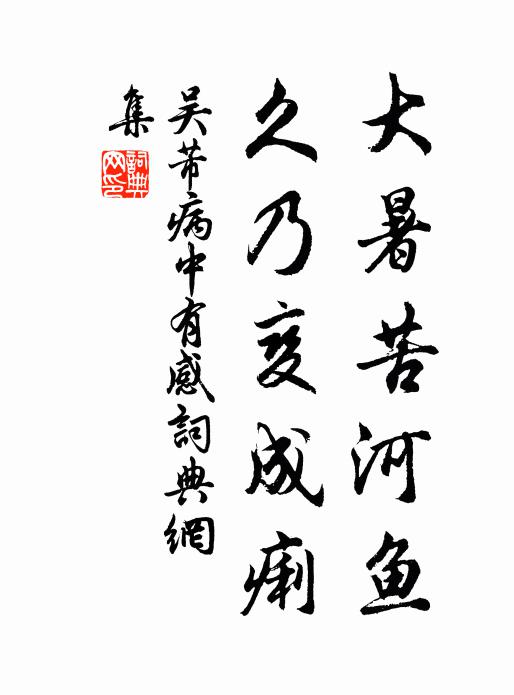 大暑苦河鱼
久乃变成痢
吴芾病中有感詞典網
集
詞典網印